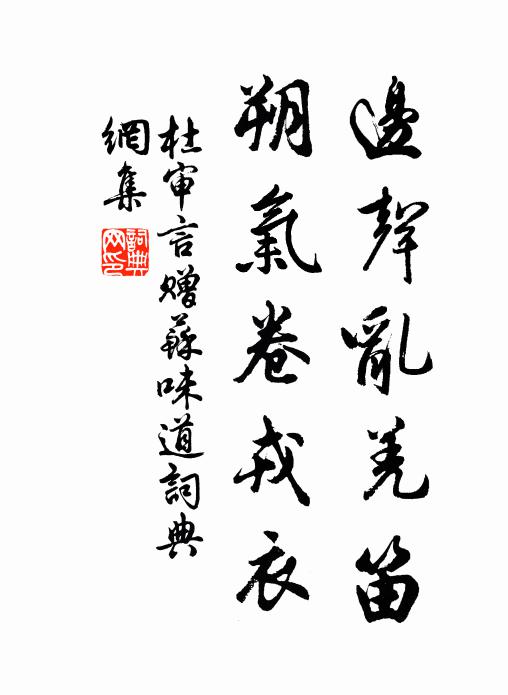 邊聲亂羌笛
朔氣卷戎衣
杜审言赠蘇味道詞典
網集
詞典网印